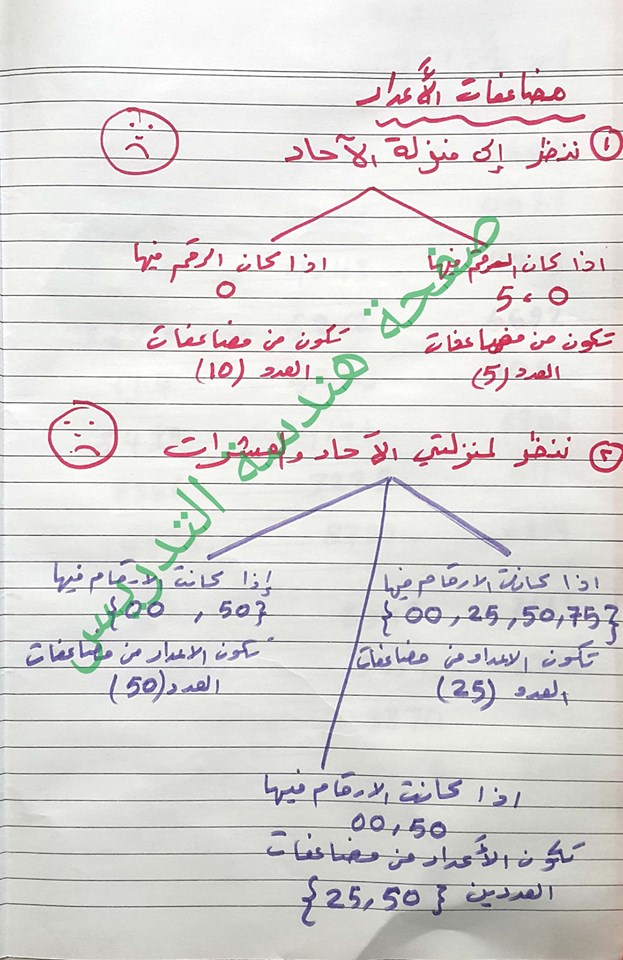 مضاعفات الأعداد
١ ننظر إلى منزلة الآحاد
اذا كان الرقم فيها
0 ، 5
تكون من مضاعفات
العدد (5)
اذا كان الرقم فيها
0
تكون من مضاعفات
العدد (10)
٢ ننظر لمنزلتي الآحاد والعشرات
اذا كانت الارقام فيها
{00,25,50,75}
تكون الاعداد من مضاعفات
العدد (25)
إذا كانت الارقام فيها
{00 , 50}
تكون الاعداد من مضاعفات
العدد (50)
اذا كانت الارقام فيها
00,50
تكون الأعداد من مضاعفات
العددين {25,50}
صفحة هندسة التدريس